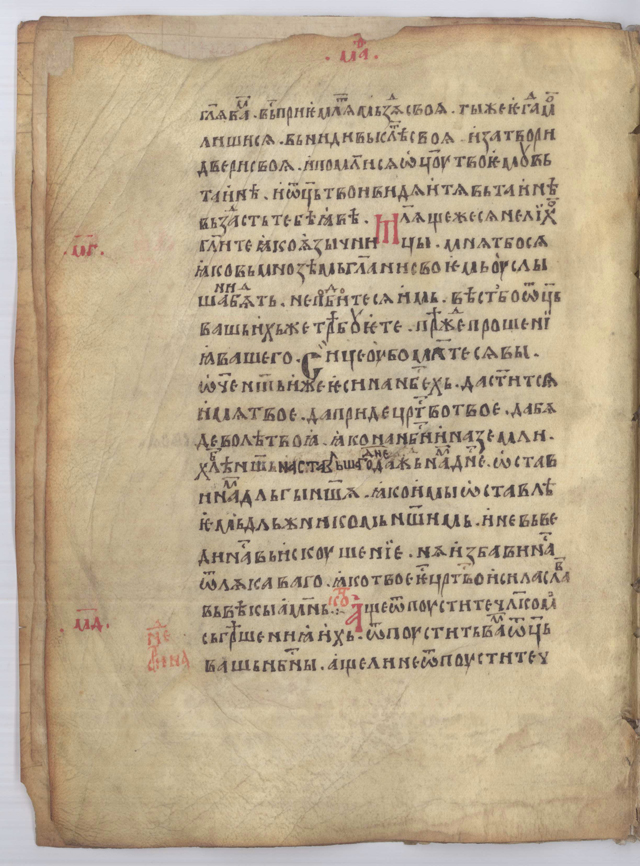 ·м҃в·
глѧ ва̑м · въприѥмлѧть мъздѫ своѧ · ты же ѥгда мо
лишисѧ · въниди въ клѣть своѧ · и затвори
двери своѧ · и помлисѧ ѡцоу твоѥмоу въ
таинѣ · и ѿць твои видѧи тѧ въ таинѣ
въздасть тебѣ ꙗвѣ · Молѧще же сѧ не лихо
·м҃г· глите ꙗко ꙗзычници · мнѧтбосѧ
ꙗко въ мноземь глании своѥмь оуслы
шани бѫдѫть · не подобитесѧ имь · вѣстъ бо ѿць
вашь ихъже трѣбоуѥте · прѣжде прошениꙗ
вашего · Сице оубо молитесѧ вы ·
ѡче нашь иже ѥси на нбсехъ · да ститсѧ
имѧ твое · да приде црство твое · да бѫ
де волѣ твоꙗ · ꙗко на нбси и на земли ·
хлѣбь нашь наставьшаго дне даждь намь дне · ѡстав
и намь длъгы нашѧ · ꙗко и мы ѡставлѣ
ѥмь длъжникомь нашимь · и не въве
ди нась въ искоушениїе · нѫ избави нась
ѿ лѫкаваго · ꙗко твое ѥ црство и сила и слава
въ вѣкы аминь · Аще ѿпоустите члкомь
·м҃д· съгрѣшениꙗ ихь · ѿпоустить вамь ѿць
вашь нбсны · аще ли не ѿпоустите ч